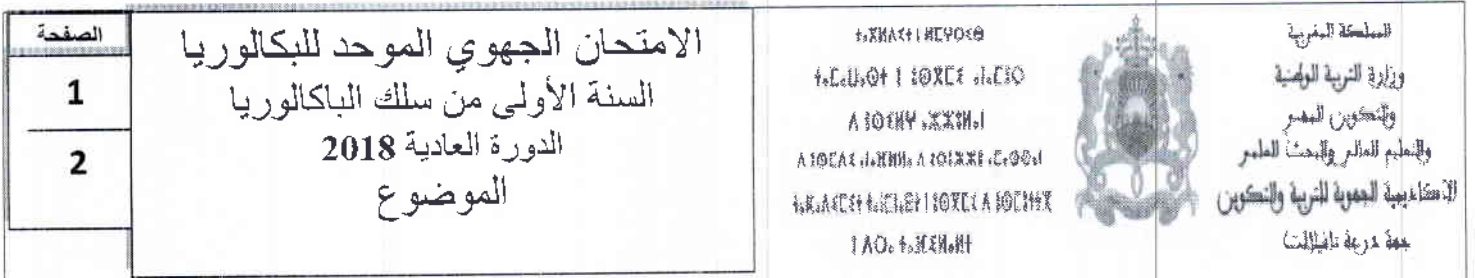 المملكة المغربية
وزارة التربية الوطنية
والتكوين المهني
والتعليم العالي والبحث العلمي
الأكاديمية الجهوية للتربية والتكوين
جهة درعة تافيلالت
ⵜⴰⴳⵍⴷⵉⵜ ⵏ ⵍⵎⵖⵔⵉⴱ
ⵜⴰⵎⴰⵡⴰⵙⵜ ⵏ ⵓⵙⴳⵎⵉ ⴰⵏⴰⵎⵓⵔ
الامتحان الجهوي الموحد للبكالوريا
السنة الأولى من سلك الباكالوريا
الدورة العادية 2018
الموضوع
الصفحة
1
2